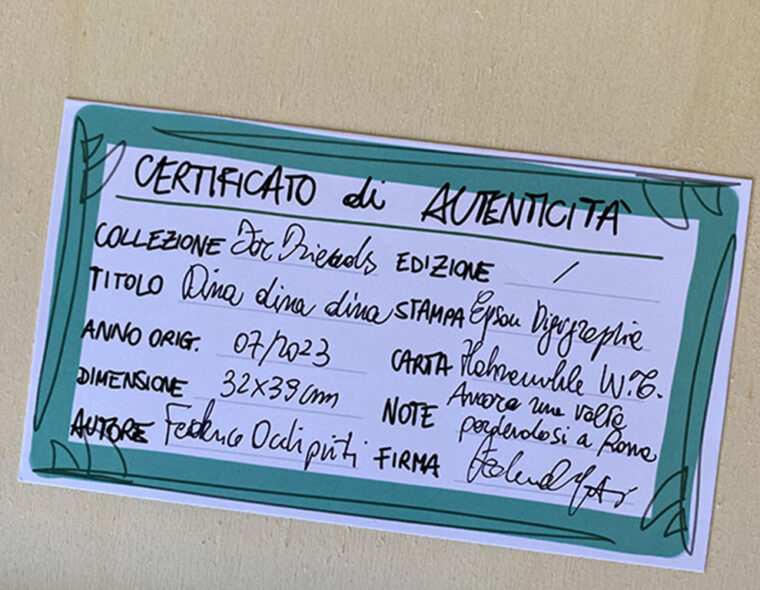 CERTIFICATO di AUTENTICITÀ
COLLEZIONE For Friends
TITOLO Dina dina dina
ANNO ORIG. 07/2023
DIMENSIONE 32x39cm
AUTORE Federico Occhipinti
EDIZIONE /
STAMPA Epson Digigraphie
CARTA Hahnemühle W.T.
NOTE Ancora una volta
perdendosi a Roma
FIRMA